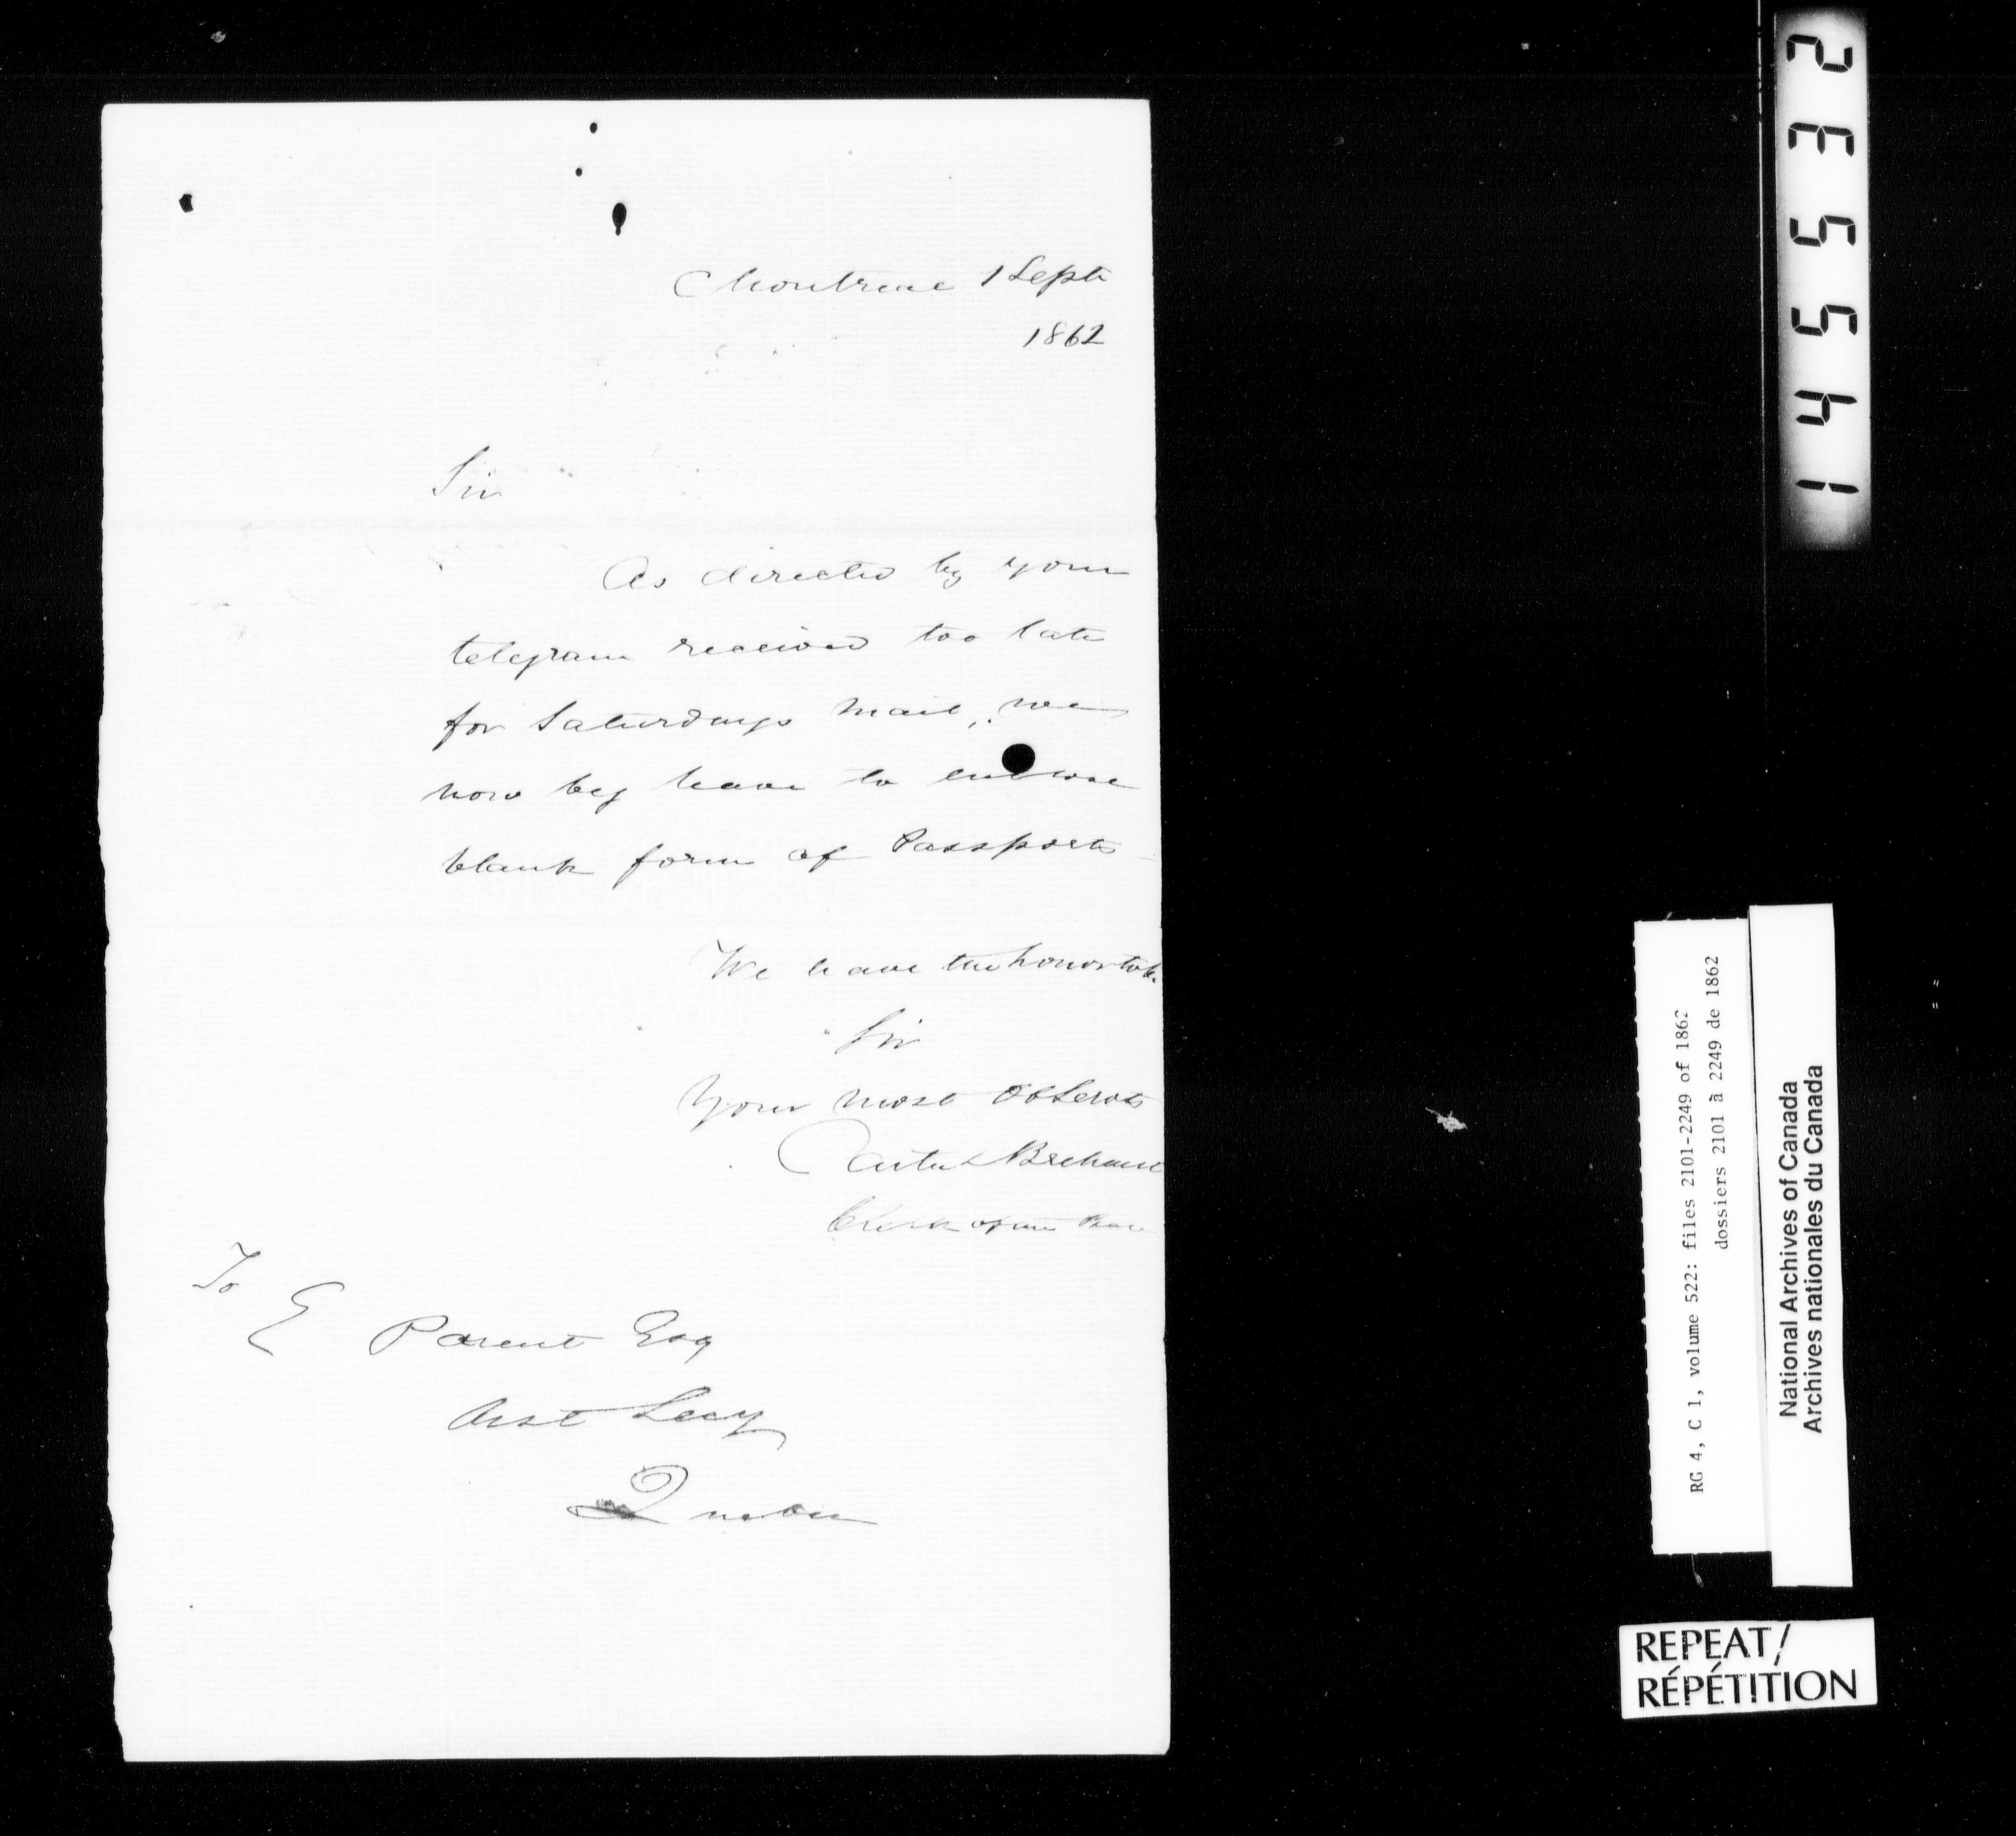 Montreal 1 Sept
1862
Sir
As directed by your
telegram received too late
for Saturdays mail, we
now beg leave to enclose
blank form of Passports
We have the honor to be
Sir
Your most Ob Servts
Clerk of the Peace
To
E Parent Esq
Asst Secy
Quebec
145532
RG 4, C 1, volume 522: files 2101-2249 of 1862
dossiers 2101 à 2249 de 1862
National Archives of Canada
Archives nationales du Canada
REPEAT/
RÉPÉTITION